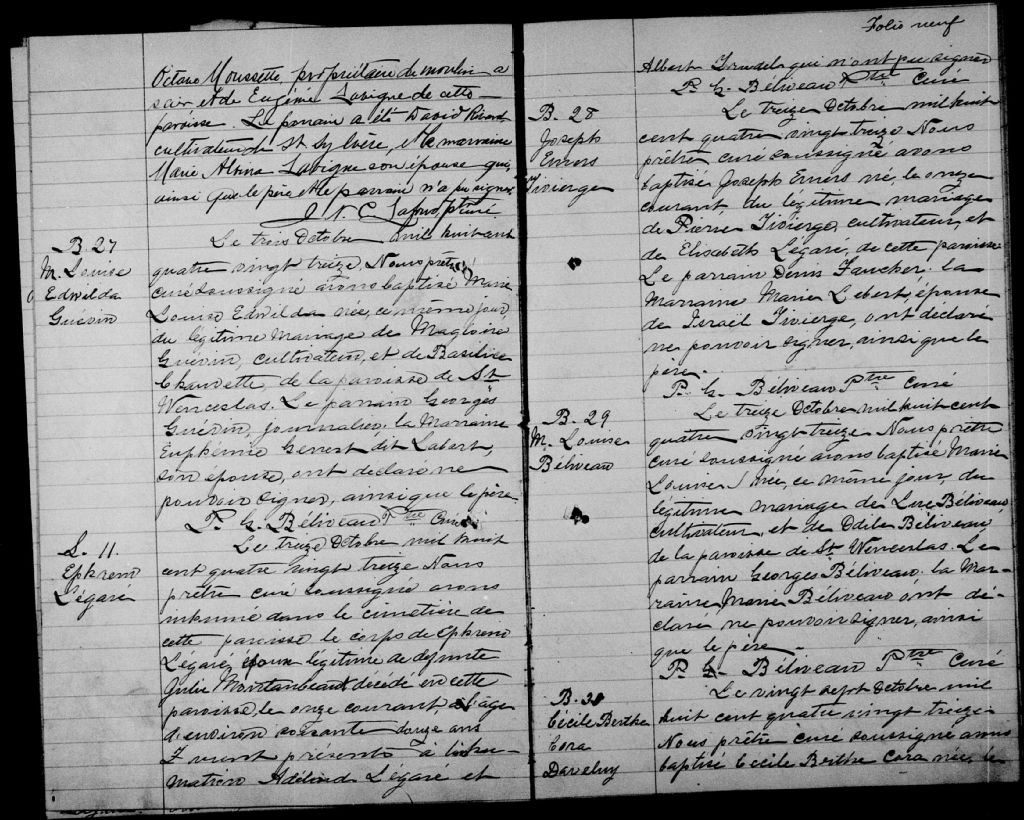 Octave Moussette propriétaire de moulin a
scie et de Eugénie Lavigne de cette
paroisse. Le parrain a été David Rivard
cultivateur de St Sylvère, et la marraine
Marie Albina Lavigne son épouse qui,
ainsi que le père et le parrain n'a pu signer
Ptre
B 27
M. Louise
Edwilda
Guévin
Le trois Octobre mil huit cent
quatre vingt treize, Nous prêtre
curé soussigné avons baptisé Marie
Louise Edwilda née, ce même jour,
du légitime Mariage de Magloire
Guévin, cultivateur, et de Basilise
Chaurette, de la paroisse de St
Wenceslas. Le parrain Georges
Guévin, journalier, la Marraine
Euphémie Genest dit Labert,
son épouse, ont déclaré ne
pouvoir signer, ainsi que le père.
P. G. Béliveau Ptre Curé
S. 11.
Ephrem
Légaré
Le treize Octobre mil huit
cent quatre vingt treize Nous
prêtre curé soussigné avons
inhumé dans le cimetière de
cette paroisse le corps de Ephrem
Légaré, époux légitime de defunte
Julie décédé en cette
paroisse, le onze courant à l'âge
d'environ soixante douze ans
Furent présents à l'inhu-
mation Adélard Légaré et
Folio neuf
Albert Trudel qui n'ont pu signer
P. G. Béliveau Ptre Curé
B. 28
Joseph
Emers
Tivierge
Le treize Octobre mil huit
cent quatre vingt treize Nous
prêtre curé soussigné avons
baptisé Joseph Emers né, le onze
courant du légitime mariage
de Pierre Tivierge, cultivateur, et
de Elisabeth Légaré, de cette paroisse
Le parrain Denis Faucher. la
Marraine Marie Lebert, épouse
de Israël Tivierge, ont déclaré
ne pouvoir signer, ainsi que le
père.
P. G. Béliveau Ptre Curé
B. 29
M. Louise
Béliveau
Le treize Octobre mil huit cent
quatre vingt treize Nous prêtre
curé soussigné avons baptisé Marie
Louise née, ce même jour, du
légitime mariage de Luc Béliveau,
cultivateur, et de Odile Béliveau
de la paroisse de St Wenceslas. Le
parrain Georges Béliveau. la Mar-
raine Marie Béliveau ont dé-
claré ne pouvoir signer, ainsi
que le père.
P. G. Béliveau Ptre Curé
B. 30
Cécile Berthe
Cora
Daveluy
Le vingt sept Octobre mil
huit cent quatre vingt treize
Nous prêtre curé soussigné avons
baptisé Cécile Berthe Cora née, le